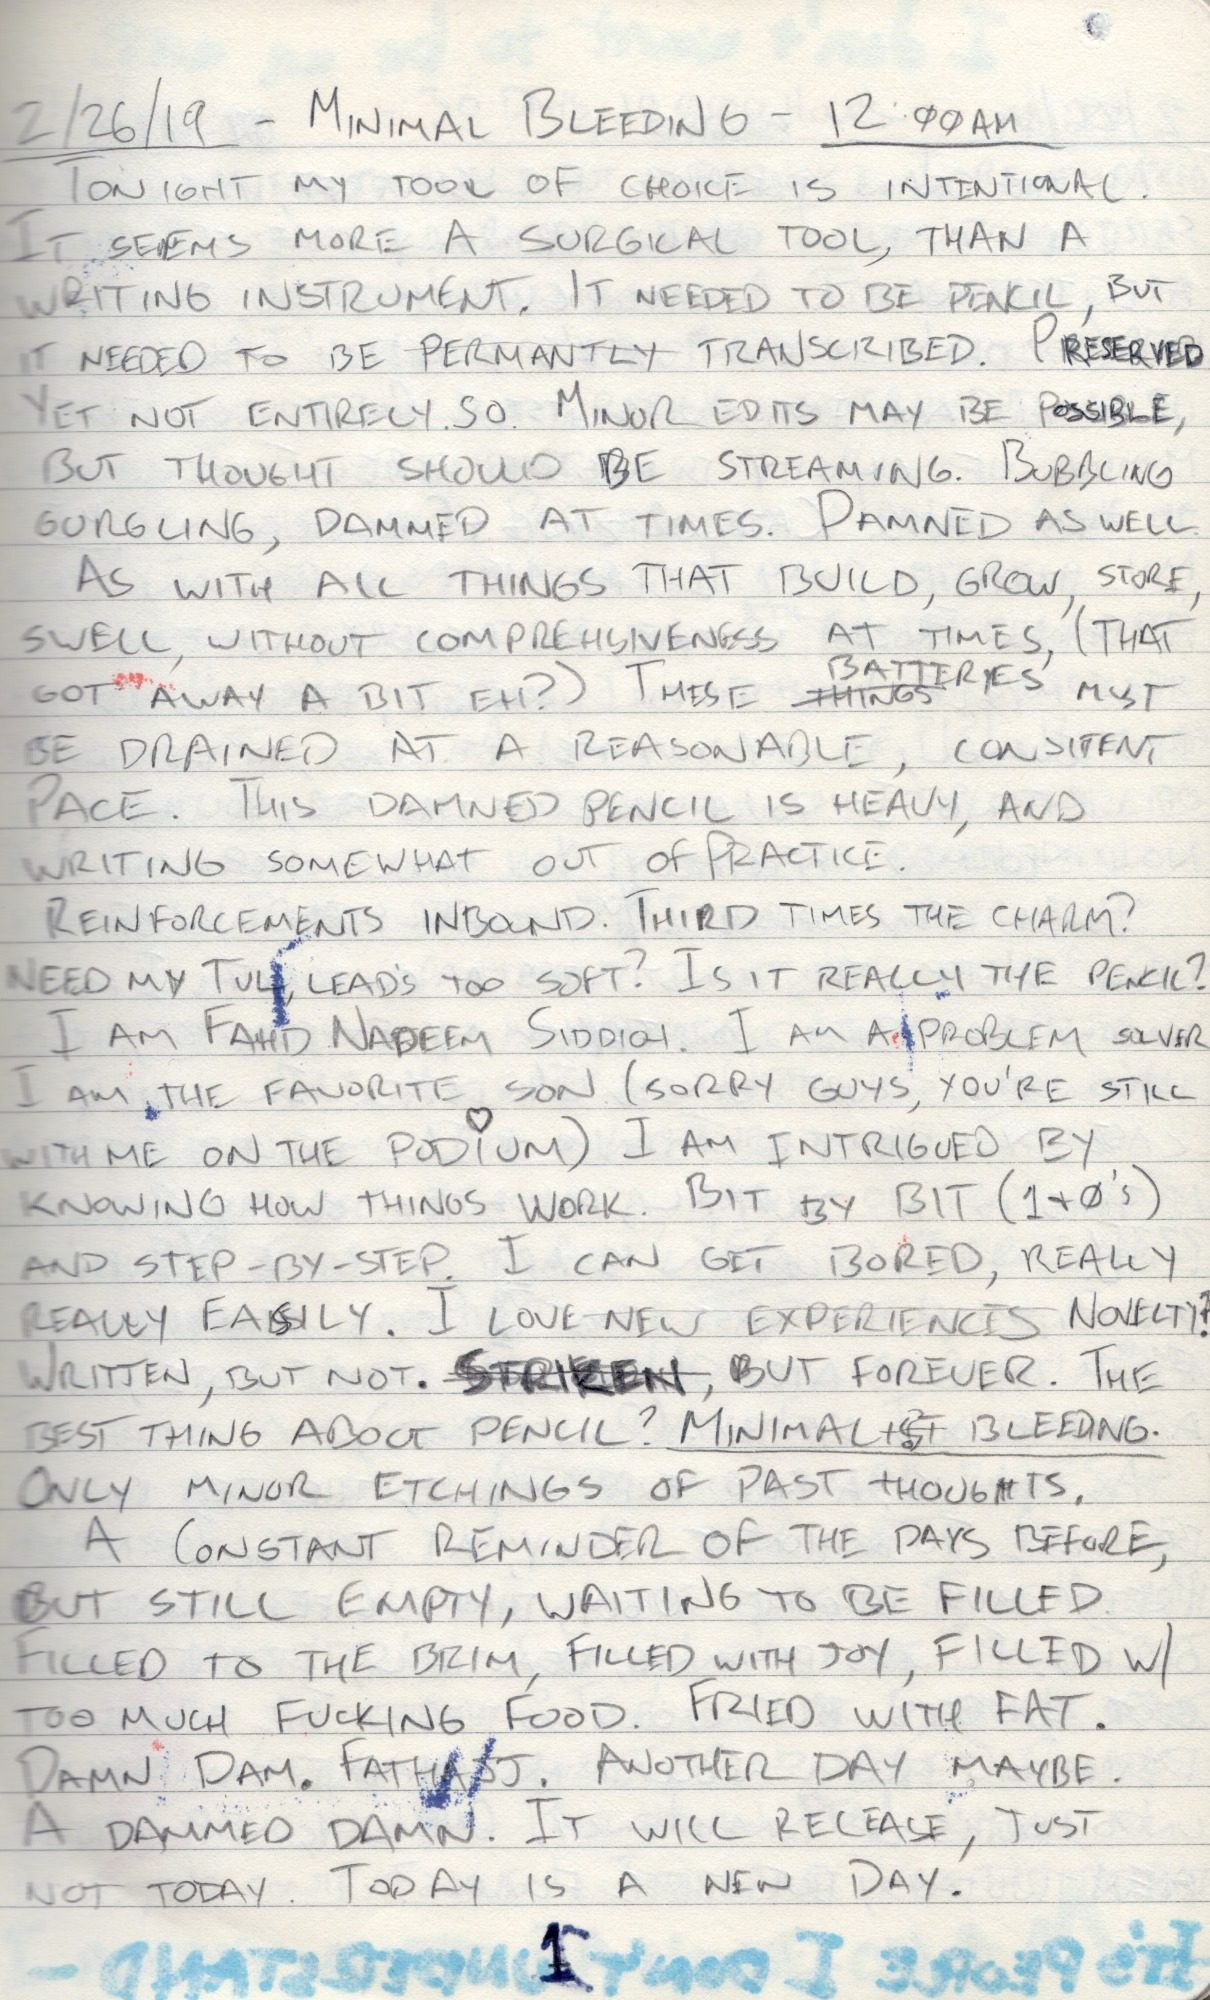 2/26/19 - MINIMAL BLEEDING - 12:00AM
TONIGHT MY TOOL OF CHOICE IS INTENTIONAL.
IT SEEMS MORE A SURGICAL TOOL, THAN A
WRITING INSTRUMENT. IT NEEDED TO BE PENCIL, BUT
IT NEEDED TO BE PERMANTLY TRANSCRIBED. PRESERVED
YET NOT ENTIRELY SO. MINOR EDITS MAY BE POSSIBLE,
BUT THOUGHT SHOULD BE STREAMING. BUBBLING
GURGLING, DAMMED AT TIMES. DAMNED AS WELL.
AS WITH ALL THINGS THAT BUILD, GROW, STORE,
SWELL, WITHOUT COMPREHSIVENESS AT TIMES, (THAT
GOT AWAY A BIT EH?) THESE THINGS BATTERIES MUST
BE DRAINED AT A REASONABLE, CONSITENT
PACE. THIS DAMNED PENCIL IS HEAVY, AND
WRITING SOMEWHAT OUT OF PRACTICE.
REINFORCEMENTS INBOUND. THIRD TIMES THE CHARM?
NEED MY TUL, LEAD'S TOO SOFT? IS IT REALLY THE PENCIL?
I AM FAHD NADEEM SIDDIQI. I AM A PROBLEM SOLVER
I AM THE FAVORITE SON (SORRY GUYS, YOU'RE STILL
WITH ME ON THE PODIUM) I AM INTRIGUED BY
KNOWING HOW THINGS WORK. BIT BY BIT (1+0's)
AND STEP-BY-STEP. I CAN GET BORED, REALLY
REALLY EASILY. I LOVE NEW EXPERIENCES NOVELTY?
WRITTEN, BUT NOT. STRIKEN, BUT FOREVER. THE
BEST THING ABOUT PENCIL? MINIMALIST BLEEDING.
ONLY MINOR ETCHINGS OF PAST THOUGHTS.
A CONSTANT REMINDER OF THE DAYS BEFORE,
BUT STILL EMPTY, WAITING TO BE FILLED.
FILLED TO THE BRIM, FILLED WITH JOY, FILLED W/
TOO MUCH FUCKING FOOD. FRIED WITH FAT.
DAMN DAM. ANOTHER DAY MAYBE.
A DAMMED DAMN. IT WILL RELEASE, JUST
NOT TODAY. TODAY IS A NEW DAY.
1
IT'S PEOPLE I DON'T UNDERSTAND -